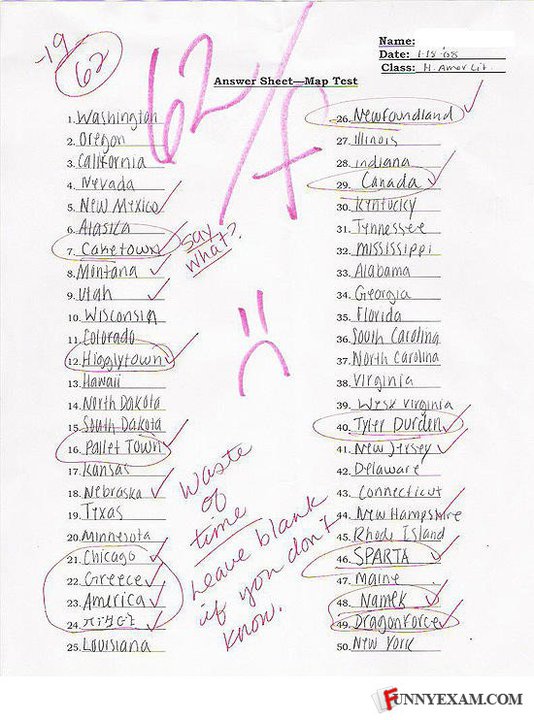 -19
62
62/F
Name:
Date: 1-18-'08
Class: H. Amer Lit.
Answer Sheet—Map Test
1. Washington
2. Oregon
3. California
4. Nevada
5. New Mexico
6. Alaska
7. Caketown
Say what?
8. Montana
9. Utah
10. Wisconsin
11. Colorado
12. Higglytown
13. Hawaii
14. North Dakota
15. South Dakota
16. Pallet Town
17. Kansas
18. Nebraska
19. Texas
20. Minnesota
21. Chicago
22. Greece
23. America
24.
25. Louisiana
Waste
of
time
Leave blank
if you don't
know.
26. Newfoundland
27. Illinois
28. Indiana
29. Canada
30. Kentucky
31. Tennessee
32. Mississippi
33. Alabama
34. Georgia
35. Florida
36. South Carolina
37. North Carolina
38. Virginia
39. West Virginia
40. Tyler Durden
41. New Jersey
42. Delaware
43. Connecticut
44. New Hampshire
45. Rhode Island
46. SPARTA
47. Maine
48. Namek
49. Dragonforce
50. New York
FUNNYEXAM.COM